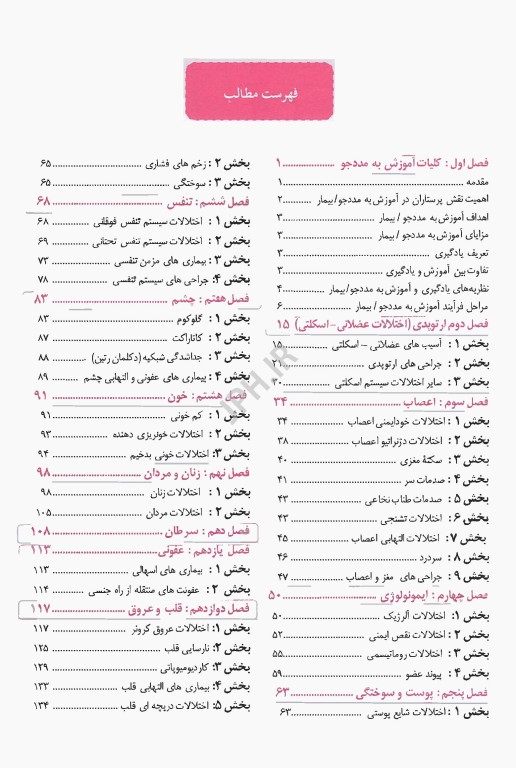 فهرست مطالب
فصل اول : کلیات آموزش به مددجو .................. ۱
مقدمه ..................................................................۱
اهمیت نقش پرستاران در آموزش به مددجو/بیمار ...........۲
اهداف آموزش به مددجو / بیمار ................................۳
مزایای آموزش به مددجو / بیمار ................................۳
تعریف یادگیری ......................................................۳
تفاوت بین آموزش و یادگیری ....................................۳
نظریه‌های یادگیری و آموزش به مددجو/بیمار.................۴
مراحل فرآیند آموزش به مددجو / بیمار ........................۶
فصل دوم ارتوپدی (اختلالات عضلانی- اسکلتی) ۱۵
بخش ۱ : آسیب های عضلانی – اسکلتی ...............۱۵
بخش ۲ : جراحی های ارتوپدی ............................۲۱
بخش ۳ : سایر اختلالات سیستم اسکلتی ................۳۰
فصل سوم : اعصاب ........................................ ۳۴
بخش ۱ : اختلالات خودایمنی اعصاب ................... ۳۴
بخش ۲ : اختلالات دژنراتیو اعصاب ...................... ۳۸
بخش ۳ : سکتهٔ مغزی ..................................... ۴۰
بخش ۴ : صدمات سر ...................................... ۴۱
بخش ۵ : صدمات طناب نخاعی .......................... ۴۳
بخش ۶ : اختلالات تشنجی ............................... ۴۳
بخش ۷ : اختلالات التهابی اعصاب ...................... ۴۵
بخش ۸ : سردرد ............................................ ۴۶
بخش ۹ : جراحی های مغز و اعصاب ................... ۴۷
فصل چهارم : ایمونولوژی ................................ ۵۰
بخش ۱: اختلالات آلرژیک ................................. ۵۰
بخش ۲ : اختلالات نقص ایمنی .......................... ۵۲
بخش ۳ : اختلالات روماتیسمی .......................... ۵۵
بخش ۴ : پیوند عضو ....................................... ۵۹
فصل پنجم : پوست و سوختگی ........................ ۶۳
بخش ۱ : اختلالات شایع پوستی ..........................۶۳
بخش ۲ : زخم های فشاری ................................ ۶۵
بخش ۳ : سوختگی .......................................... ۶۵
فصل ششم : تنفس ........................................ ۶۸
بخش ۱ : اختلالات سیستم تنفس فوقانی ............. ۶۸
بخش ۲ : اختلالات سیستم تنفس تحتانی ............. ۶۹
بخش ۳ : بیماری های مزمن تنفسی ..................... ۷۳
بخش ۴: جراحی های سیستم تنفسی .................. ۷۸
فصل هفتم : چشم ......................................... ۸۳
بخش ۱ : گلوکوم ............................................ ۸۳
بخش ۲ : کاتاراکت .......................................... ۸۷
بخش ۳ : جداشدگی شبکیه (دکلمان رتین) ............ ۸۸
بخش ۴ : بیماری های عفونی و التهابی چشم ......... ۸۹
فصل هشتم : خون ......................................... ۹۱
بخش ۱ : کم خونی ......................................... ۹۱
بخش ۲ : اختلالات خونریزی دهنده ..................... ۹۳
بخش ۳: اختلالات خونی بدخیم .......................... ۹۴
فصل نهم : زنان و مردان ................................. ۹۸
بخش ۱ : اختلالات زنان ................................... ۹۸
بخش ۲ : اختلالات مردان ................................ ۱۰۵
فصل دهم : سرطان ...................................... ۱۰۸
فصل یازدهم : عفونی .................................... ۱۱۳
بخش ۱ : بیماری های اسهالی ........................... ۱۱۳
بخش ۲ : عفونت های منتقله از راه جنسی ........... ۱۱۴
فصل دوازدهم : قلب و عروق .......................... ۱۱۷
بخش ۱: اختلالات عروق کرونر .......................... ۱۱۷
بخش ۲: نارسایی قلب ..................................... ۱۲۵
بخش ۳: کاردیومیوپاتی .................................... ۱۲۹
بخش ۴: بیماری های التهابی قلب ....................... ۱۳۳
بخش ۵: اختلالات دریچه ای قلب ........................ ۱۳۴
JPH.IR